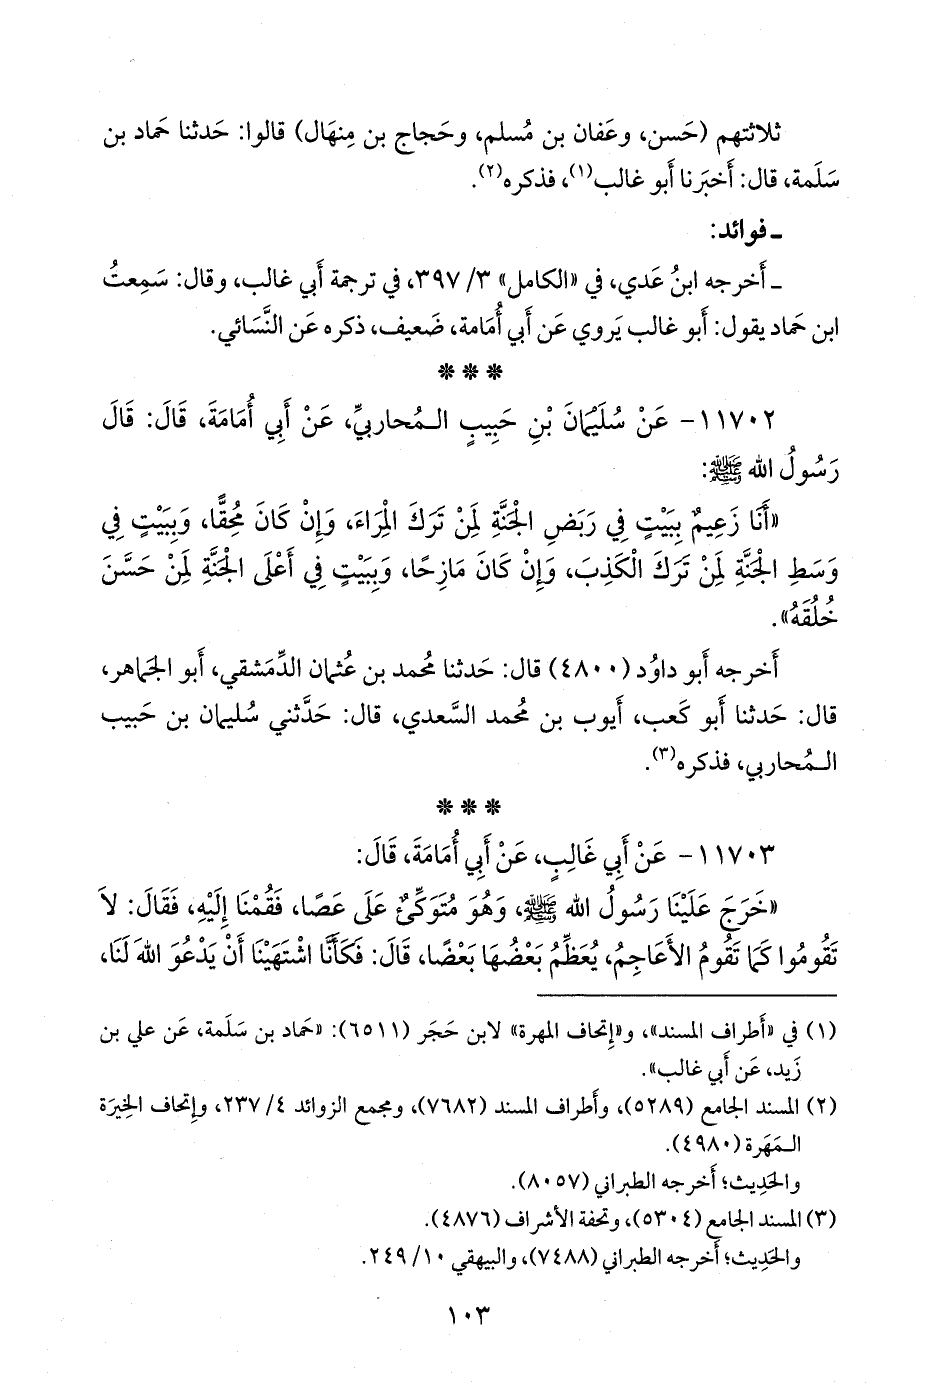 ثلاثتهم (حَسن، وعَفان بن مُسلم، وحَجاج بن مِنهَال) قالوا: حَدثنا حَماد بن
سَلَمة، قال: أَخبَرنا أَبو غالب(١)، فذكره(٢).
ـ فوائد:
ـ أَخرجه ابنُ عَدي، في «الكامل» ٣/ ٣٩٧، في ترجمة أَبي غالب، وقال: سَمِعتُ
ابن حَماد يقول: أَبو غالب يَروي عَن أَبي أُمَامة، ضَعيف، ذكره عَن النَّسَائي.
* * *
١١٧٠٢- عَنْ سُلَيْمَانَ بْنِ حَبِيبٍ الـمُحاربيِّ، عَنْ أَبِي أُمَامَةَ، قَالَ: قَالَ
رَسُولُ الله ﷺ:
«أَنَا زَعِيمٌ بِبَيْتٍ فِي رَبَضِ الْجَنَّةِ لِمَنْ تَرَكَ الْمِرَاءَ، وَإِنْ كَانَ مُحِقًّا، وَبِبَيْتٍ فِي
وَسَطِ الْجَنَّةِ لِمَنْ تَرَكَ الْكَذِبَ، وَإِنْ كَانَ مَازِحًا، وَبِبَيْتٍ فِي أَعْلَى الْجَنَّةِ لِمَنْ حَسَّنَ
خُلُقَهُ».
أَخرجه أَبو داوُد (٤٨٠٠) قال: حَدثنا مُحمد بن عُثمان الدِّمَشقي، أَبو الجَماهر،
قال: حَدثنا أَبو كَعب، أَيوب بن مُحمد السَّعدي، قال: حَدَّثني سُليمان بن حَبيب
الـمُحاربي، فذكره(٣).
* * *
١١٧٠٣- عَنْ أَبِي غَالِبٍ، عَنْ أَبِي أُمَامَةَ، قَالَ:
«خَرَجَ عَلَيْنَا رَسُولُ الله ﷺ، وَهُوَ مُتَوَكِّئٌ عَلَى عَصًا، فَقُمْنَا إِلَيْهِ، فَقَالَ: لاَ
تَقُومُوا كَمَا تَقُومُ الأَعَاجِمُ، يُعَظِّمُ بَعْضُهَا بَعْضًا، قَالَ: فَكَأَنَّا اشْتَهَيْنَا أَنْ يَدْعُوَ اللهَ لَنَا،
(١) في «أَطراف المسند»، و«إِتحاف المهرة» لابن حَجَر (٦٥١١): «حَماد بن سَلَمة، عَن علي بن
زَيد، عَن أَبي غالب».
(٢) المسند الجامع (٥٢٨٩)، وأَطراف المسند (٧٦٨٢)، ومجمع الزوائد ٤/ ٢٣٧، وإِتحاف الخِيرَة
الـمَهَرة (٤٩٨٠).
والحَدِيث؛ أَخرجه الطبراني (٨٠٥٧).
(٣) المسند الجامع (٥٣٠٤)، وتحفة الأشراف (٤٨٧٦).
والحَدِيث؛ أَخرجه الطبراني (٧٤٨٨)، والبيهقي ١٠/ ٢٤٩.
١٠٣